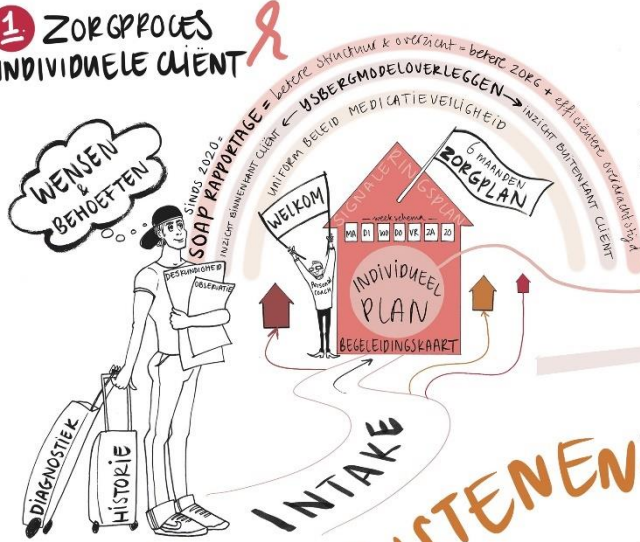 1. ZORGPROCES
INDIVIDUELE CLIËNT
WENSEN
&
BEHOEFTEN
SINDS 2020 =
SOAP RAPPORTAGE = betere structuur & overzicht = betere ZORG + efficiëntere overdrachtstijd
INZICHT BINNENKANT CLIËNT ← YSBERGMODELOVERLEGGEN → INZICHT BUITENKANT CLIËNT
UNIFORM BELEID MEDICATIEVEILIGHEID
DESKUNDIGHEID
OBSERVATIE
WELKOM
PERSOONL.
COACH
SIGNALERINGSPLAN
6 MAANDEN
ZORGPLAN
weekschema
MA DI WO DO VR ZA ZO
INDIVIDUEEL
PLAN
BEGELEIDINGSKAART
DIAGNOSTIEK
HISTORIE
INTAKE
STENEN